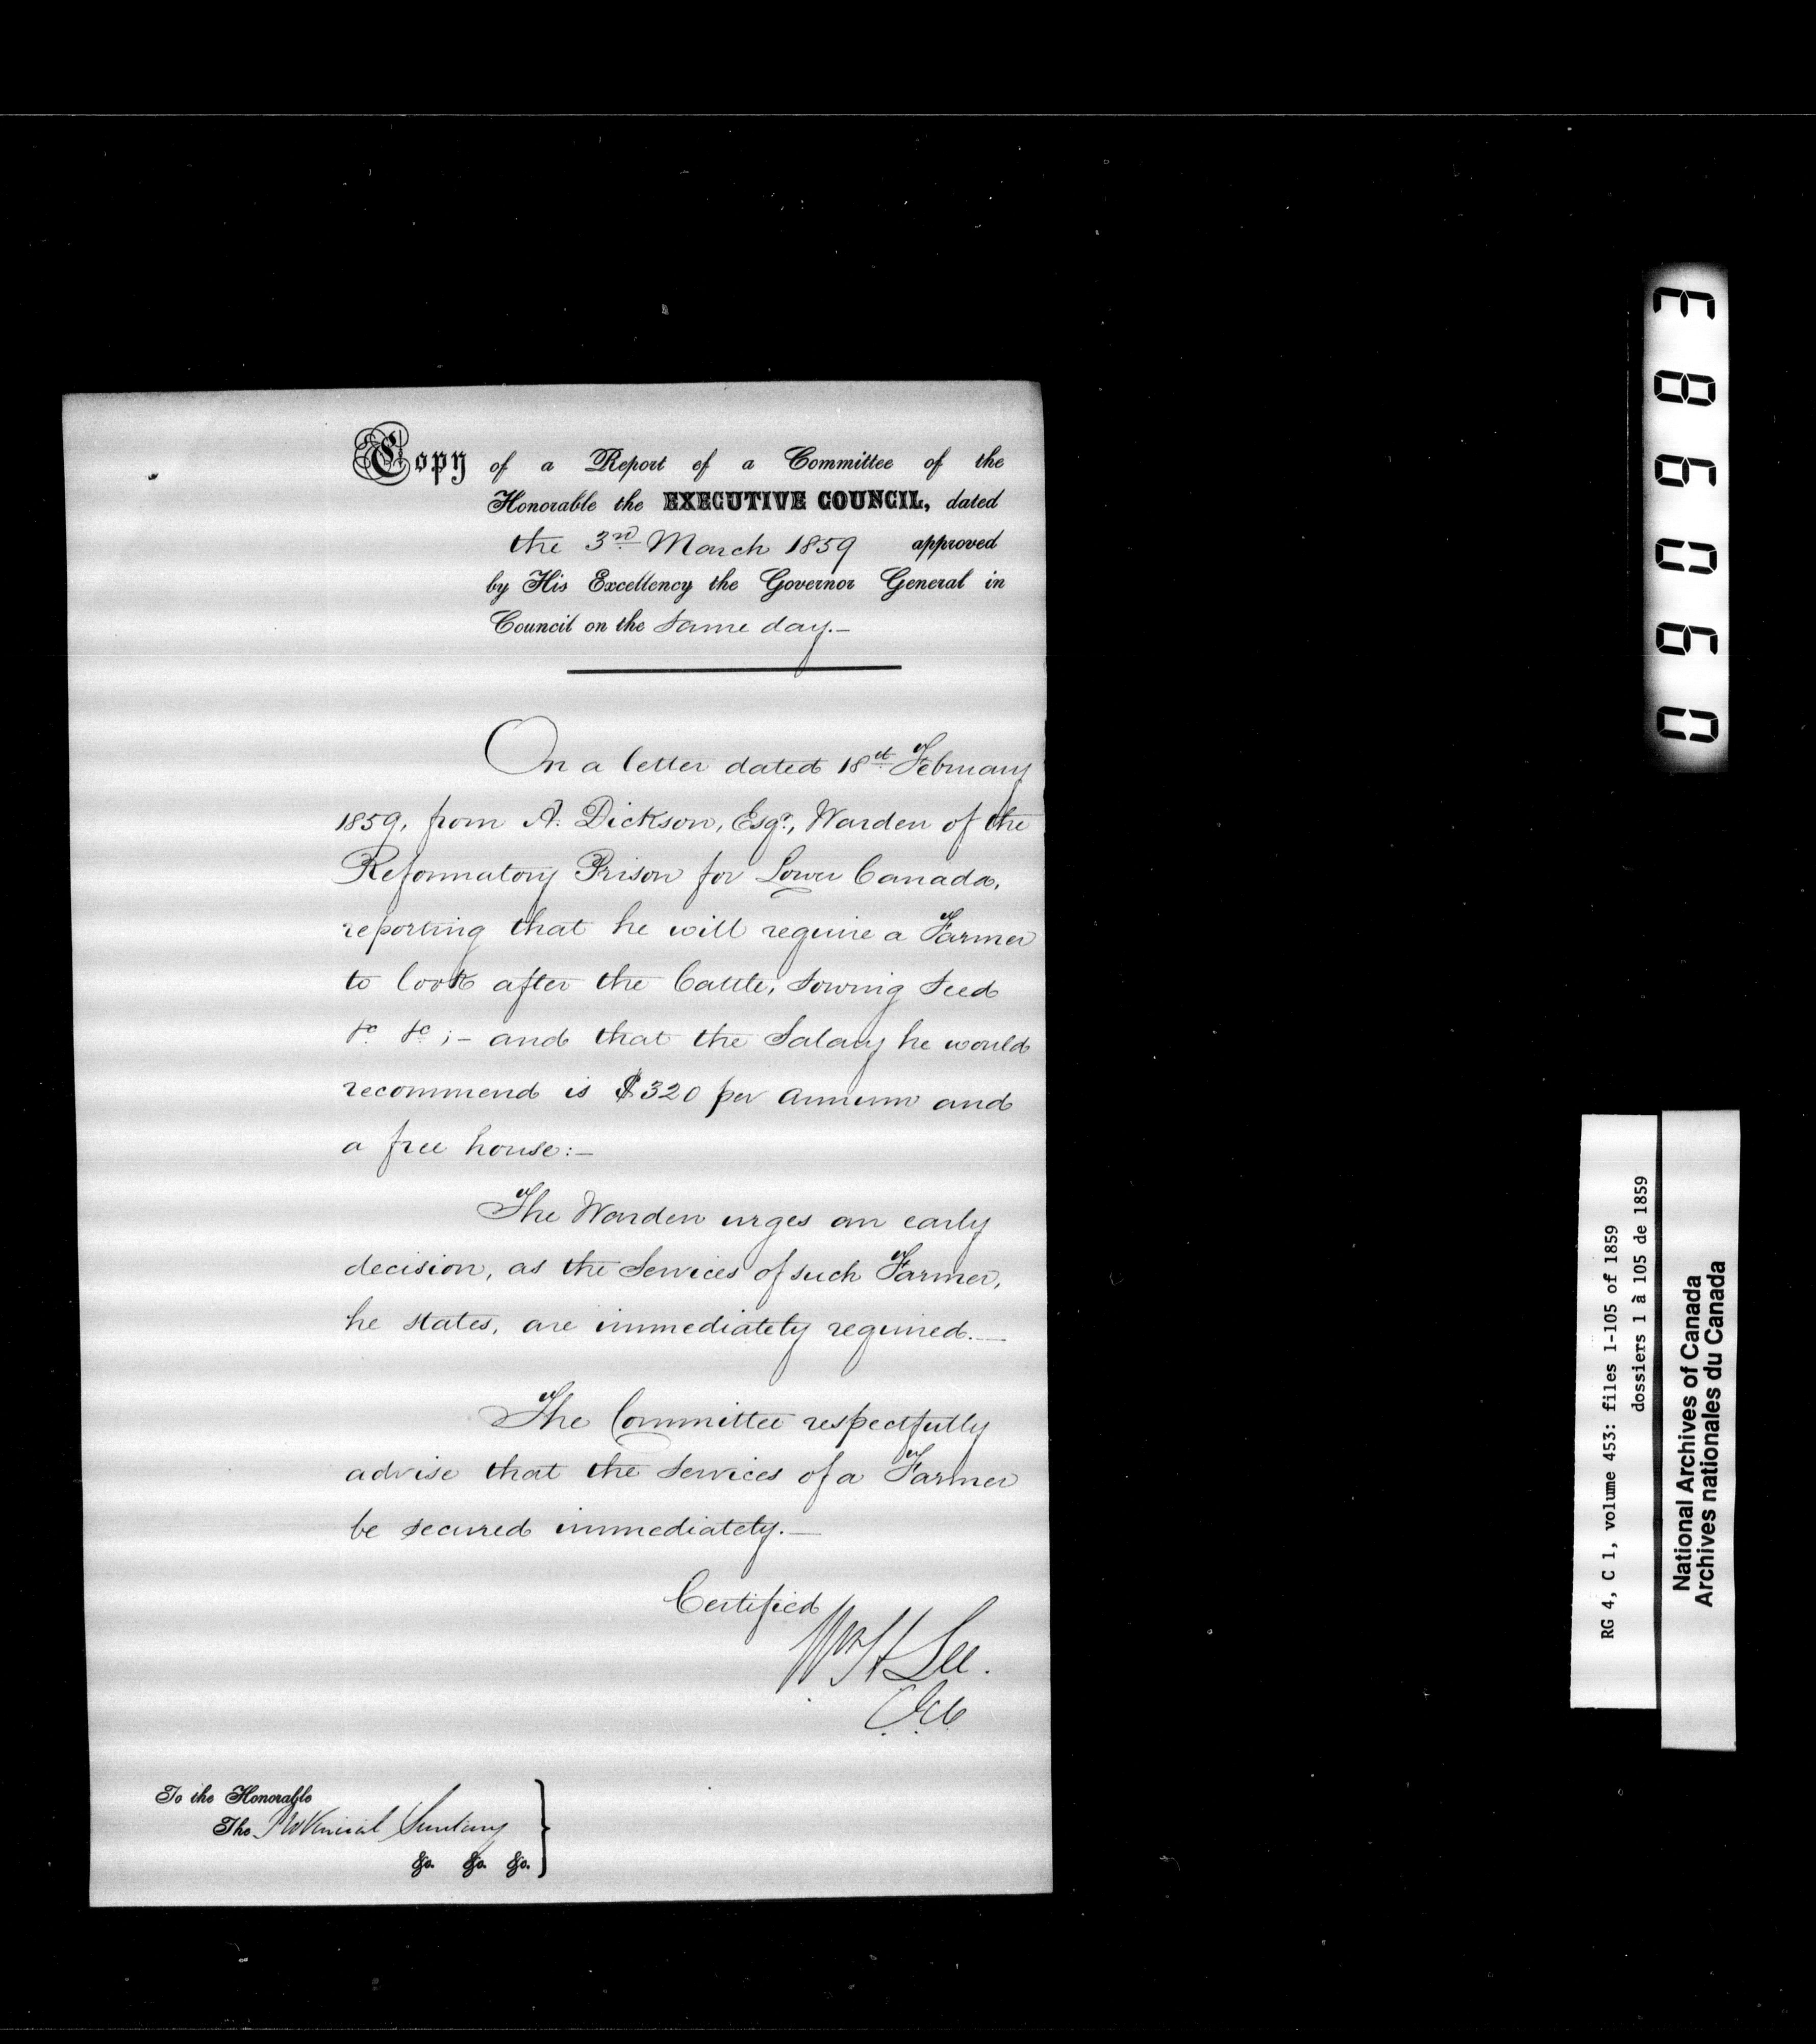 Copy of a Report of a Committee of the
Honorable the EXECUTIVE COUNCIL, dated
the 3rd March 1859 approved
by His Excellency the Governor General in
Council on the same day.—
On a letter dated 18th February
1859, from A. Dickson, Esqr., Warden of the
Reformatory Prison for Lower Canada,
reporting that he will require a Farmer
to look after the Cattle, sowing seed
&c &c ;— and that the Salary he would
recommend is $320 per annum and
a free house:—
The Warden urges an early
decision, as the Services of such Farmer,
he states, are immediately required.—
The Committee respectfully
advise that the services of a Farmer
be secured immediately.—
Certified
Wm H Lee.
C.E.C
To the Honorable
The Provincial Secretary
&c. &c. &c.
06906983
RG 4, C 1, volume 453: files 1-105 of 1859
dossiers 1 à 105 de 1859
National Archives of Canada
Archives nationales du Canada